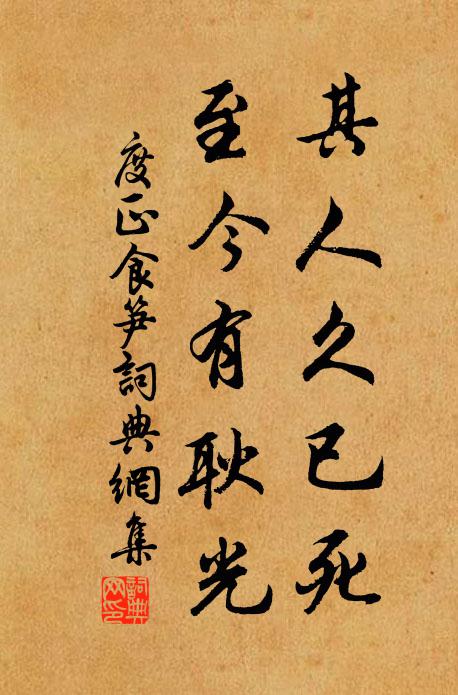 其人久已死
至今有耿光
度正食笋詞典網集
詞典
网印